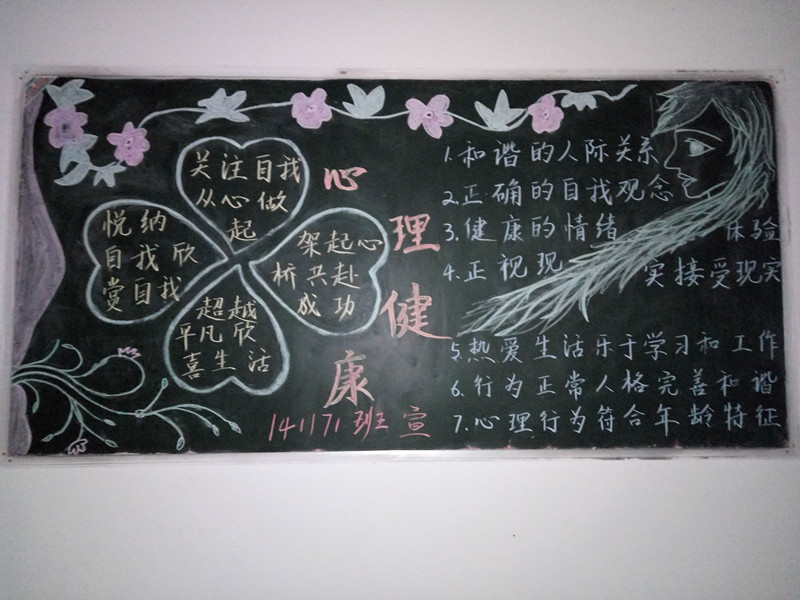 关注自我
从心做
起
悦纳
自我欣
赏自我
架起心
桥共赴
成功
超越
平凡欣
喜生活
心
理
健
康
141171班宣
1.和谐的人际关系
2.正确的自我观念
3.健康的情绪 体验
4.正视现 实接受现实
5.热爱生活乐于学习和工作
6.行为正常人格完善和谐
7.心理行为符合年龄特征